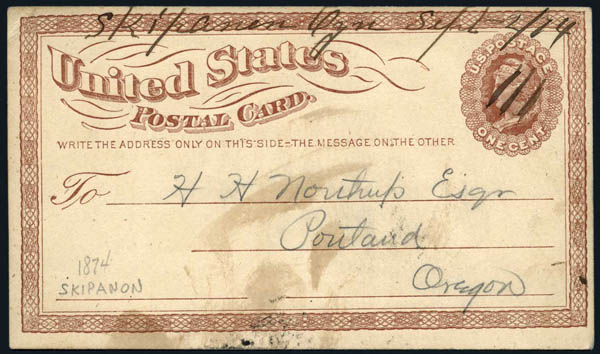 Skipanon Ogn Sept 1/74
United States
POSTAL CARD.
U.S. POSTAGE
ONE CENT
WRITE THE ADDRESS ONLY ON THIS SIDE–THE MESSAGE ON THE OTHER
To H H Northup Esqr
Portland
Oregon
1874
SKIPANON